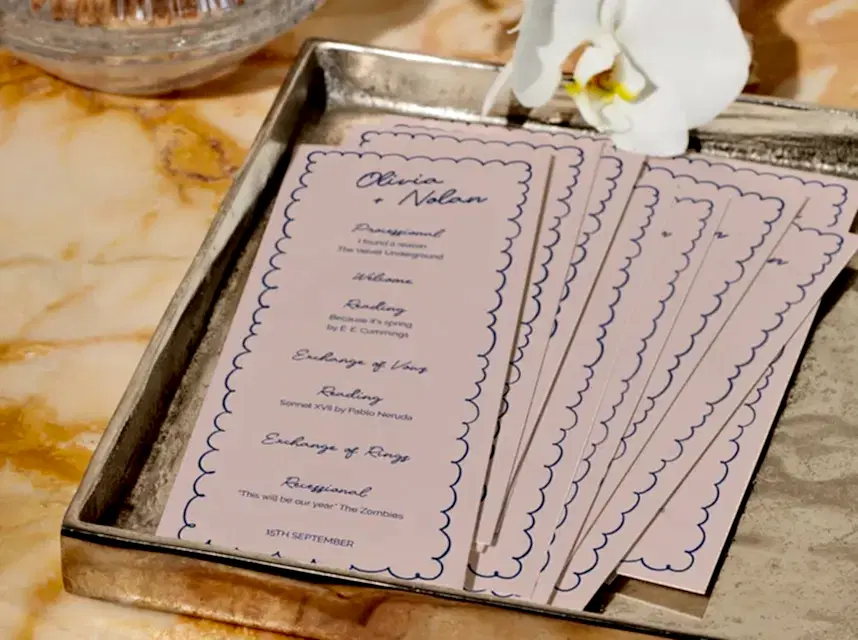 Olivia
+ Nolan
Processional
I found a reason
The Velvet Underground
Welcome
Reading
Because it's spring
by E. E. Cummings
Exchange of Vows
Reading
Sonnet XVII by Pablo Neruda
Exchange of Rings
Recessional
"This will be our year" The Zombies
15TH SEPTEMBER